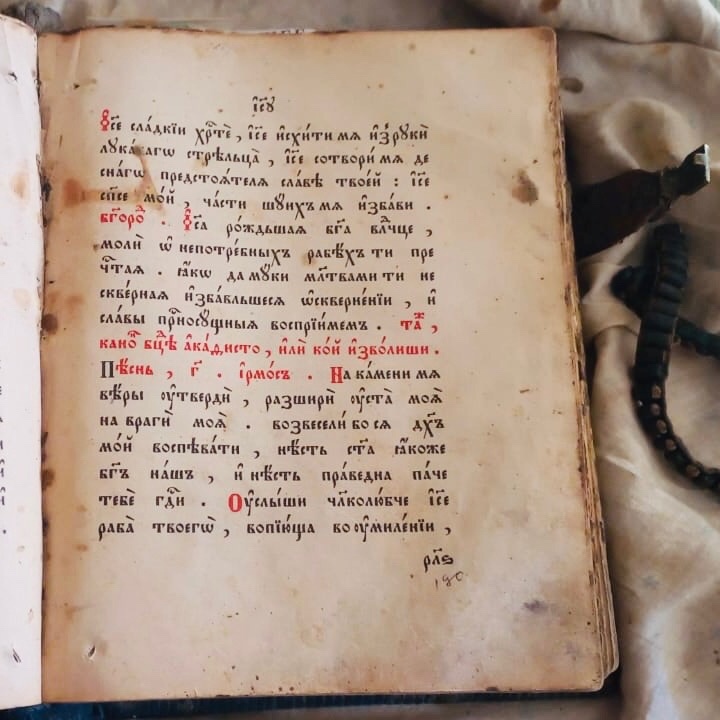 і҆с҃у
І҆с҃е сла́дкїи хрⷭ҇тѐ , і҆с҃е и҆схи́ти мѧ и҆з̾рꙋкѝ
лꙋка́вагѡ стрѣльца̀ , і҆с҃е сотвори́ мѧ де
сна́гѡ предстоѧ́телѧ сла́вѣ твое́й : і҆с҃е
сп҃се мо́й , ча́сти шꙋ́ихъ мѧ и҆зба́ви .
бг҃оро́ⷣ . І҆с҃а ро́ждьшаѧ бг҃а влⷣчце ,
молѝ ѡ҆ непотре́бныхъ рабѣ́хъ ти пре
чⷭ҇таѧ . ꙗ҆́кѡ да мꙋ́ки мл҃твами ти не
скве́рнаѧ и҆зба́вльшесѧ ѡ҆скверне́нїи , и҆
сла́вы прⷭ҇носꙋ́щныѧ воспрїи́мемъ . таⷤ ,
кано́ⷩ бцⷣѣ а҆ка́ѳисто , и҆лѝ ко́й и҆зво́лиши .
Пѣ́снь , г҃ . і҆рмо́съ . На ка́мени мѧ
вѣ́ры ᲂу҆твердѝ , разширѝ ᲂу҆ста̀ моѧ̀
на врагѝ моѧ̀ . возвесели́ бо сѧ дх҃ъ
мо́й воспѣва́ти , нѣ́сть ст҃а ꙗ҆́коже
бг҃ъ на́шъ , и҆ нѣ́сть пра́ведна па́че
тебѐ гдⷭ҇и . Оу҆слы́ши чл҃колю́бче і҆с҃е
раба̀ твоегѡ̀ , вопїю́ща во ᲂу҆миле́нїи ,
рл҃ѕ
190